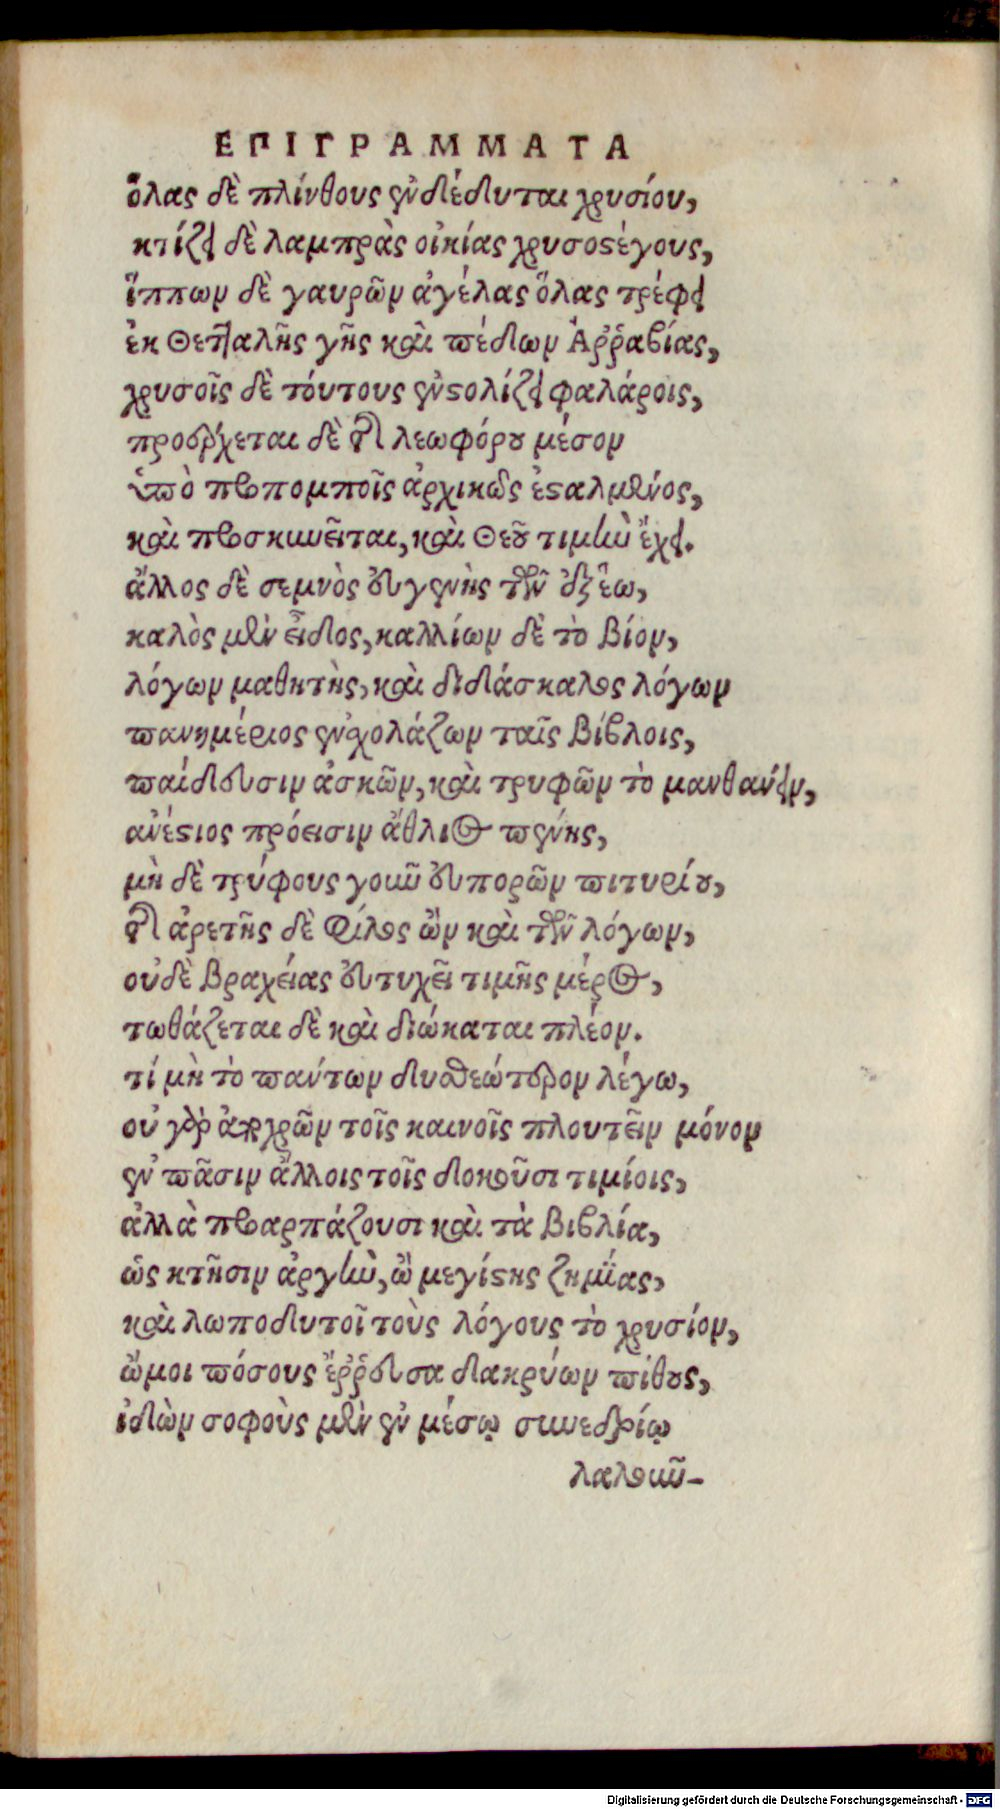 ΕΠΙΓΡΑΜΜΑΤΑ
ὅλας δὲ πλίνθους ἐνδέδυται χρυσίου,
κτίζει δὲ λαμπρὰς οἰκίας χρυσοστέγους,
ἵππων δὲ γαυρῶν ἀγέλας ὅλας τρέφει
ἐκ Θετταλῆς γῆς καὶ πέδων Ἀῤῥαβίας,
χρυσοῖς δὲ τόυτους ἐνστολίζει φαλάροις,
προσέρχεται δὲ τῆ λεωφόρου μέσον
ὑπὸ προπομποῖς ἀρχικῶς ἐσταλμένος,
καὶ προσκυνεῖται, καὶ Θεοῦ τιμὴν ἔχει.
ἄλλος δὲ σεμνὸς ἐυγενὴς τῶν ὀξέων,
καλὸς μὲν εἶδος, καλλίων δὲ τὸ βίον,
λόγων μαθητὴς, καὶ διδάσκαλος λόγων
πανημέριος ἐνσχολάζων ταῖς βίβλοις,
παίδευσιν ἀσκῶν, καὶ τρυφῶν τὸ μανθανειν,
ἀνέστιος πρόεισιν ἄθλιος πένης,
μὴ δὲ τρύφους γοῦν ἐυπορῶν πιτυρίου,
τῆ ἀρετῆς δὲ φίλος ὢν καὶ τῶν λόγων,
οὐδὲ βραχείας ἐυτυχεῖ τιμῆς μέρος,
τωθάζεται δὲ καὶ διώκαται πλέον.
τί μὴ τὸ πάντων δυσθεώτερον λέγω,
οὐ γὰρ ἀπαρχρῶν τοῖς καινοῖς πλουτεῖν μόνον
ἐν πᾶσιν ἄλλοις τοῖς δοκοῦσι τιμίοις,
ἀλλὰ προαρπάζουσι καὶ τὰ βιβλία,
ὡς κτῆσιν ἀργὴν, ὢ μεγίστης ζημίας,
καὶ λωποδυτοῖ τοὺς λόγους τὸ χρυσίον,
ὤμοι πόσους ἔῤῥευσα δακρύων πίθους,
ἰδὼν σοφοὺς μὲν ἐν μέσῳ συνεδρίῳ
λαλοῦν-
Digitalisierung gefördert durch die Deutsche Forschungsgemeinschaft - DFG